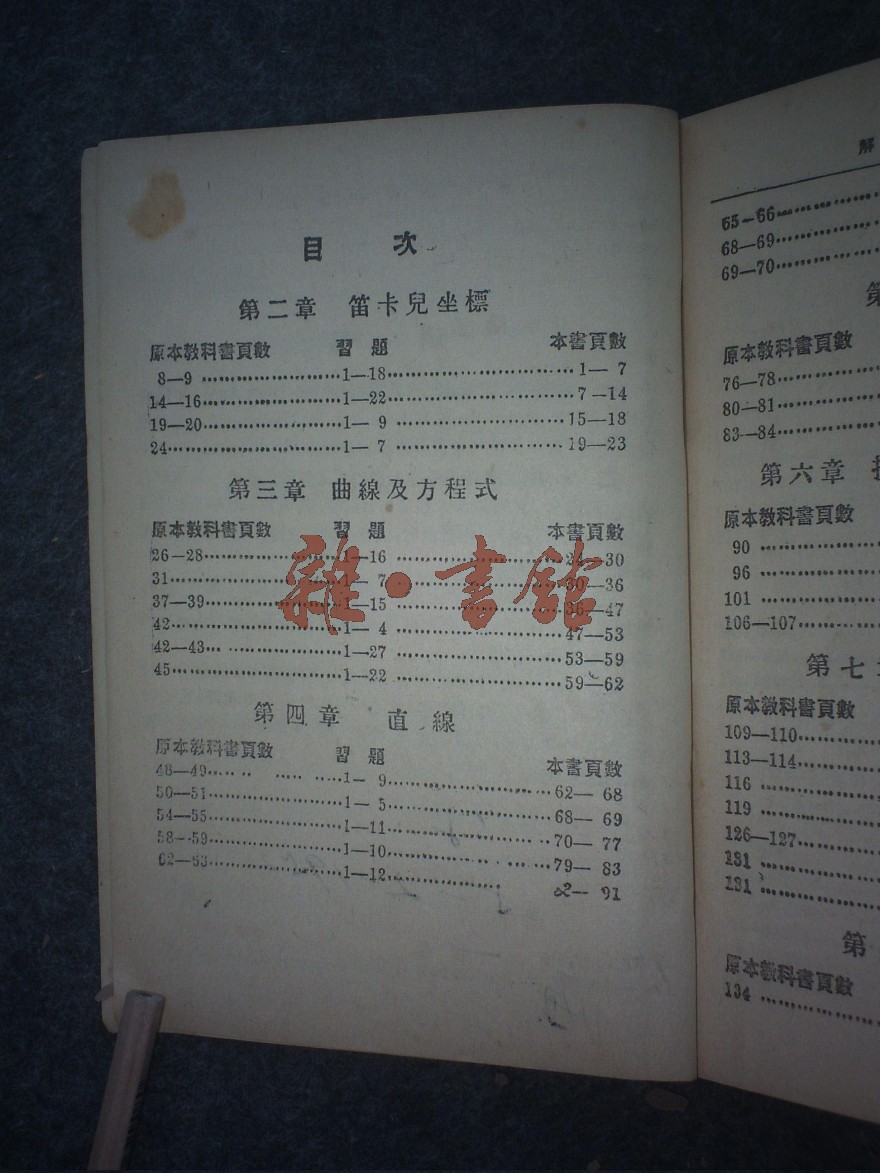 目 次
第二章 笛卡兒坐標
原本敎科書頁數 習 題 本書頁數
8—9 ……………………1—18……………………… 1— 7
14—16……………………1—22……………………… 7 —14
19—20……………………1— 9 ……………………15—18
24…………………………1— 7 ……………………19—23
第三章 曲線及方程式
原本敎科書頁數 習 題 本書頁數
26—28……………………1—16 ……………………—30
31…………………………1— 7 ……………………—36
37—39……………………1—15 ……………………—47
42…………………………1— 4 ……………………47—53
42—43… …………………1—27 ……………………53—59
45…………………………1—22 ……………………59—62
第四章 直線
原本敎科書頁數 習 題 本書頁數
48—49…… … …… ……1— 9……………………62— 68
50—51……………………1— 5 ……………………68— 69
54—55……………………1—11……………………70— 77
58—59……………………1—10……………………79— 83
62—63……………………1—12…………………… — 91
雜·書館
解
65—66……………
68—69……………
69—70……………
第
原本敎科書頁數
76—78……………
80—81……………
83—84……………
第六章
原本敎科書頁數
90 ……………
96 ……………
101 ……………
106—107…………
第七
原本敎科書頁數
109—110…………
113—114…………
116 ……………
119 ……………
126—127…………
131 ……………
131 ……………
第
原本敎科書頁數
134 ……………